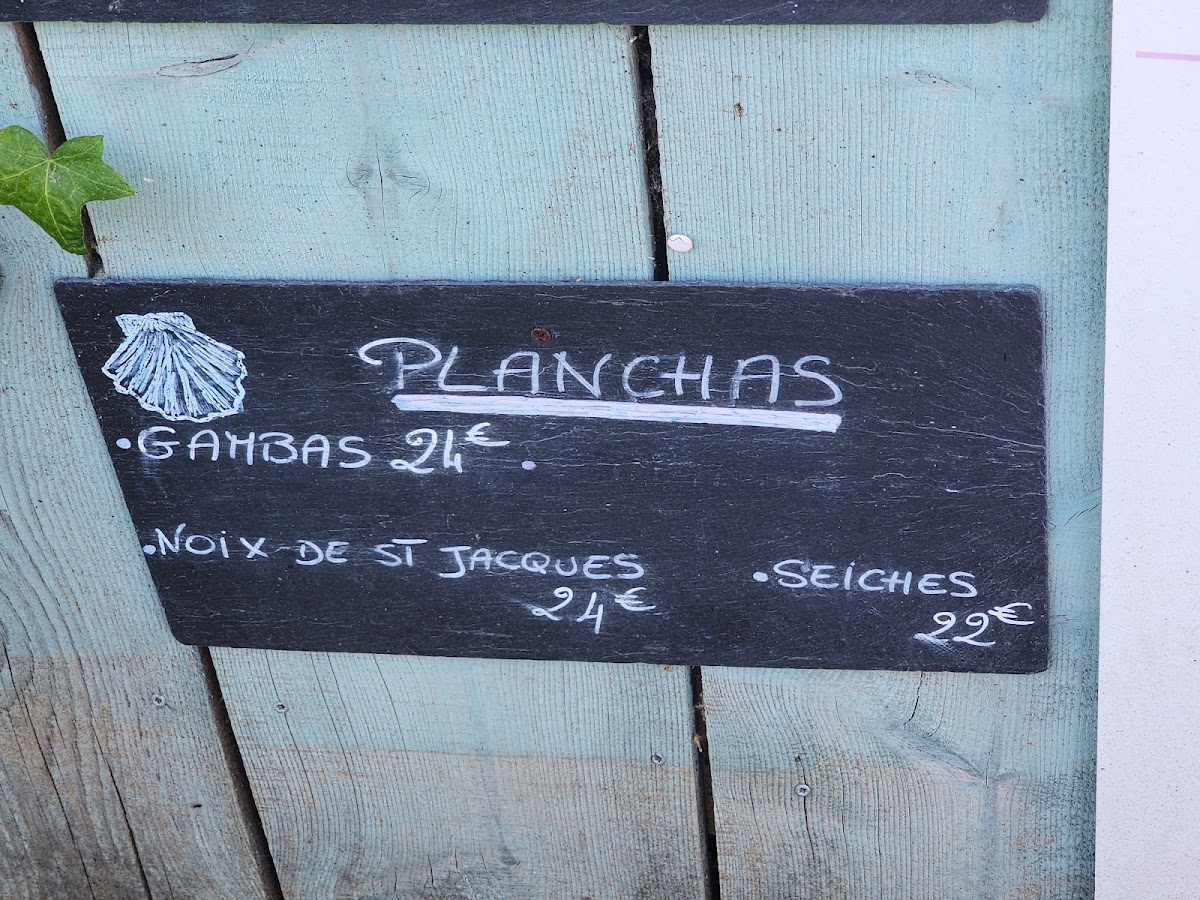 PLANCHAS
• GAMBAS 24€
• NOIX DE ST JACQUES
24€
• SEICHES
22€